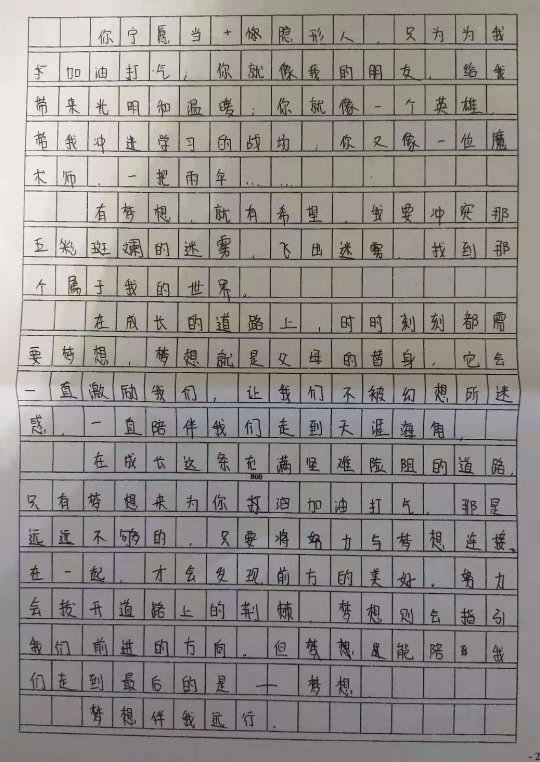 你宁愿当十像隐形人，只为为我
加油打气；你就像我的朋友，给我
带来光明和温暖；你就像一个英雄，
带我冲进学习的战场，你又像一位魔
术师，一把雨伞……
有梦想，就有希望，我要冲突那
五彩斑斓的迷雾，飞出迷雾，找到那
个属于我的世界。
在成长的道路上，时时刻刻都需
要梦想，梦想就是父母的替身，它会
一直激励我们，让我们不被幻想所迷
惑，一直陪伴我们走到天涯海角，
在成长这条充满坚难险阻的道路，
800
只有梦想来为你加油打气，那是
远远不够的，只要将努力与梦想连接
在一起，才会发现前方的美好，努力
会拨开道路上的荆棘，梦想则会指引
我们前进的方向，但梦想是能陪我
们走到最后的是一梦想，
梦想伴我远行．
- 2